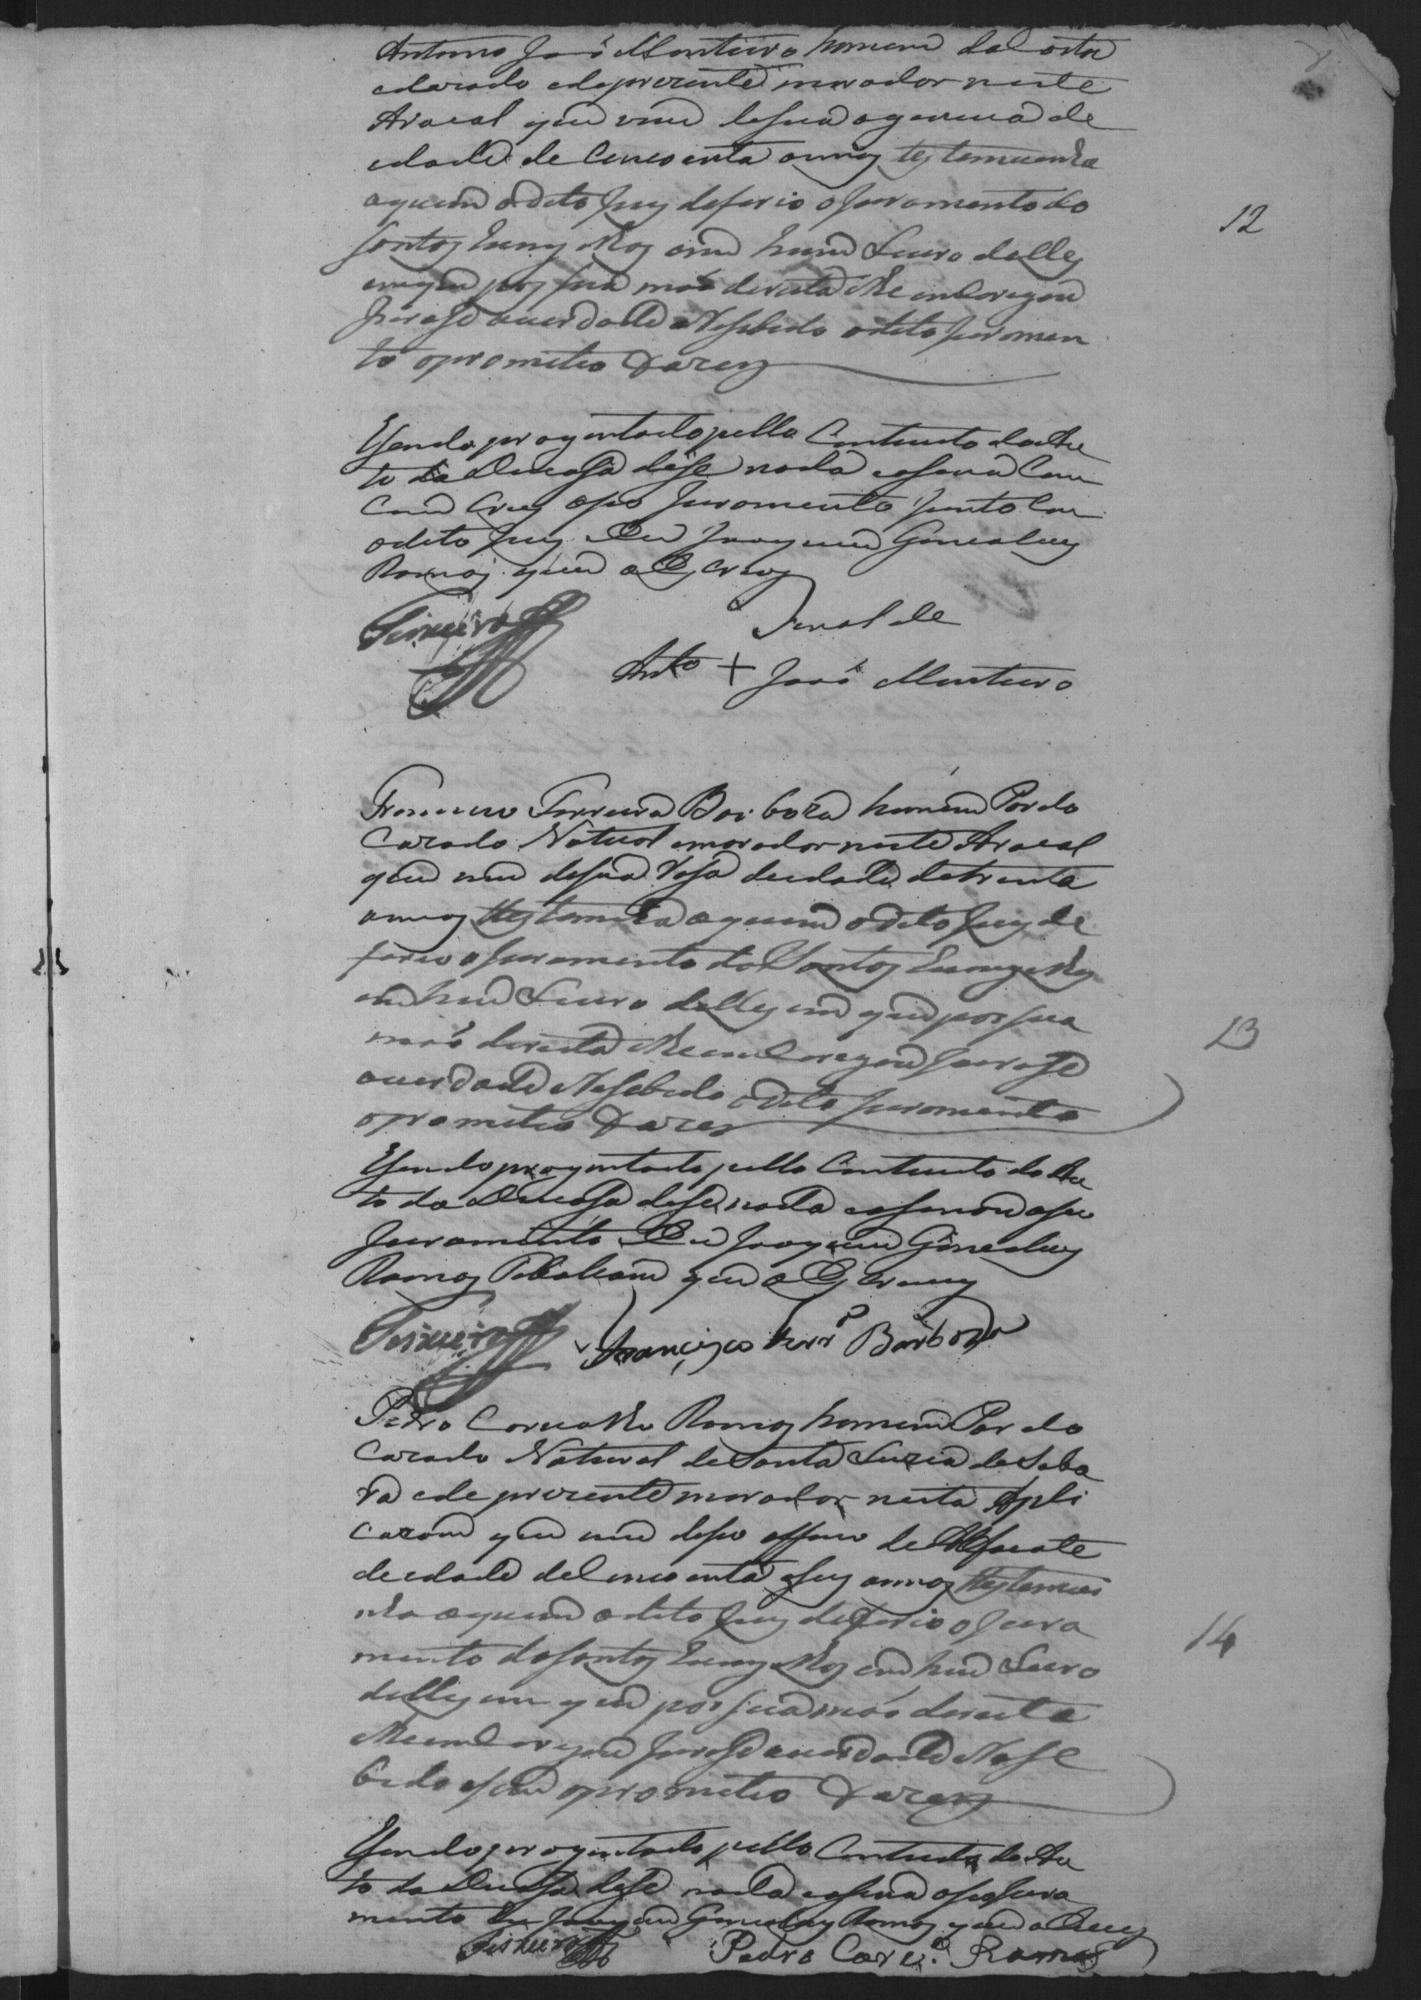 Antonio José Monteiro homem da Costa
cazado e de prezente morador neste
Araeal que vive de sua agencia de
idade de Cincoenta annos testemunha
a quem o dito Juiz deferio o juramento dos
Santos Evang.lhos em hum Livro delles
em que pos sua mão direita e lhe encaregou
jurase a verdade do que soubese e o dito juramen
to o prometeo Fazer
12
E sendo progontado pello Contheudo do Au
to da Devasa dise nada e asina Com
Cruz o seo Juramento junto Com
o dito Juiz Eu Joaquim Gonsalves
Ramos que o Escrevy
Teixeira
Sinal de
Anto + José Monteiro
Francisco Ferreira Barboza homem Pardo
Cazado Natural e morador neste Araeal
que vive de sua Rosa de idade de trinta
annos testemunha a quem o dito Juiz de
ferio o juramento dos Santos Evangelhos
em hum Livro delles em que pos sua
mão direita e lhe encaregou jurase
a verdade do que soubese e o dito juramento
o prometeo Fazer
13
E sendo progontado pello Contheudo do Au
to da Devasa dise nada e asinou o seu
Juramento Eu Joaquim Gonsalves
Ramos Tabaliam que o Escrevy
Teixeira Francisco Ferrª Barboza
Pedro Carvalho Ramos homem Pardo
Cazado Natural de Santa Luzia do Saba
ra e de prezente morador nesta Apli
cazam que vive de seo officio de Alfaiate
de idade de Cincoenta e seis annos testemu
nha a quem o dito Juiz deferio o jura
mento dos Santos Evang.lhos em hum Livro
delles em que pos sua mão direita
e lhe encaregou jurase a verdade do que
soubese e o prometeo Fazer
14
E sendo progontado pello Contheudo do Au
to da Devasa dise nada e asina o seo Jura
mento Eu Joaquim Gonsalves Ramos que o Escrevy
Teixeira Pedro Carvº Ramos